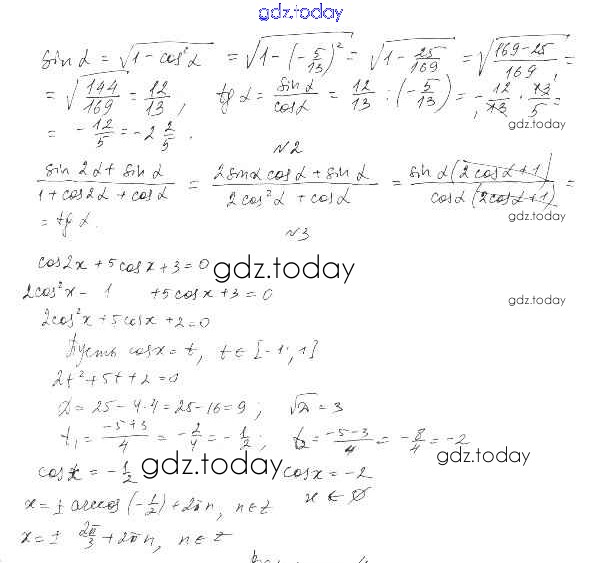 gdz.today
sin α = √(1 - cos²α) = √(1 - (-5/13)²) = √(1 - 25/169) = √((169-25)/169) =
= √(144/169) = 12/13, tg α = sin α/cos α = 12/13 : (-5/13) = -12/13 · 13/5 =
= -12/5 = -2 2/5.
gdz.today
№2
(sin 2α + sin α)/(1 + cos2α + cos α) = (2 sin α cos α + sin α)/(2 cos²α + cos α) = (sin α (2 cos α + 1))/(cos α (2 cos α + 1)) =
gdz.today
= tg α.
№3
cos2x + 5 cos x + 3 = 0
gdz.today
2cos²x - 1 + 5 cos x + 3 = 0
gdz.today
2cos²x + 5 cos x + 2 = 0
Пусть cos x = t, t ∈ [-1; 1]
2t² + 5t + 2 = 0
D = 25 - 4·4 = 25 - 16 = 9; √D = 3
t₁ = (-5+3)/4 = -2/4 = -1/2; t₂ = (-5-3)/4 = -8/4 = -2
gdz.today
cos x = -1/2 cos x = -2
gdz.today
x = ± arccos (-1/2) + 2πn, n ∈ z x ∈ ∅
x = ± 2π/3 + 2πn, n ∈ z